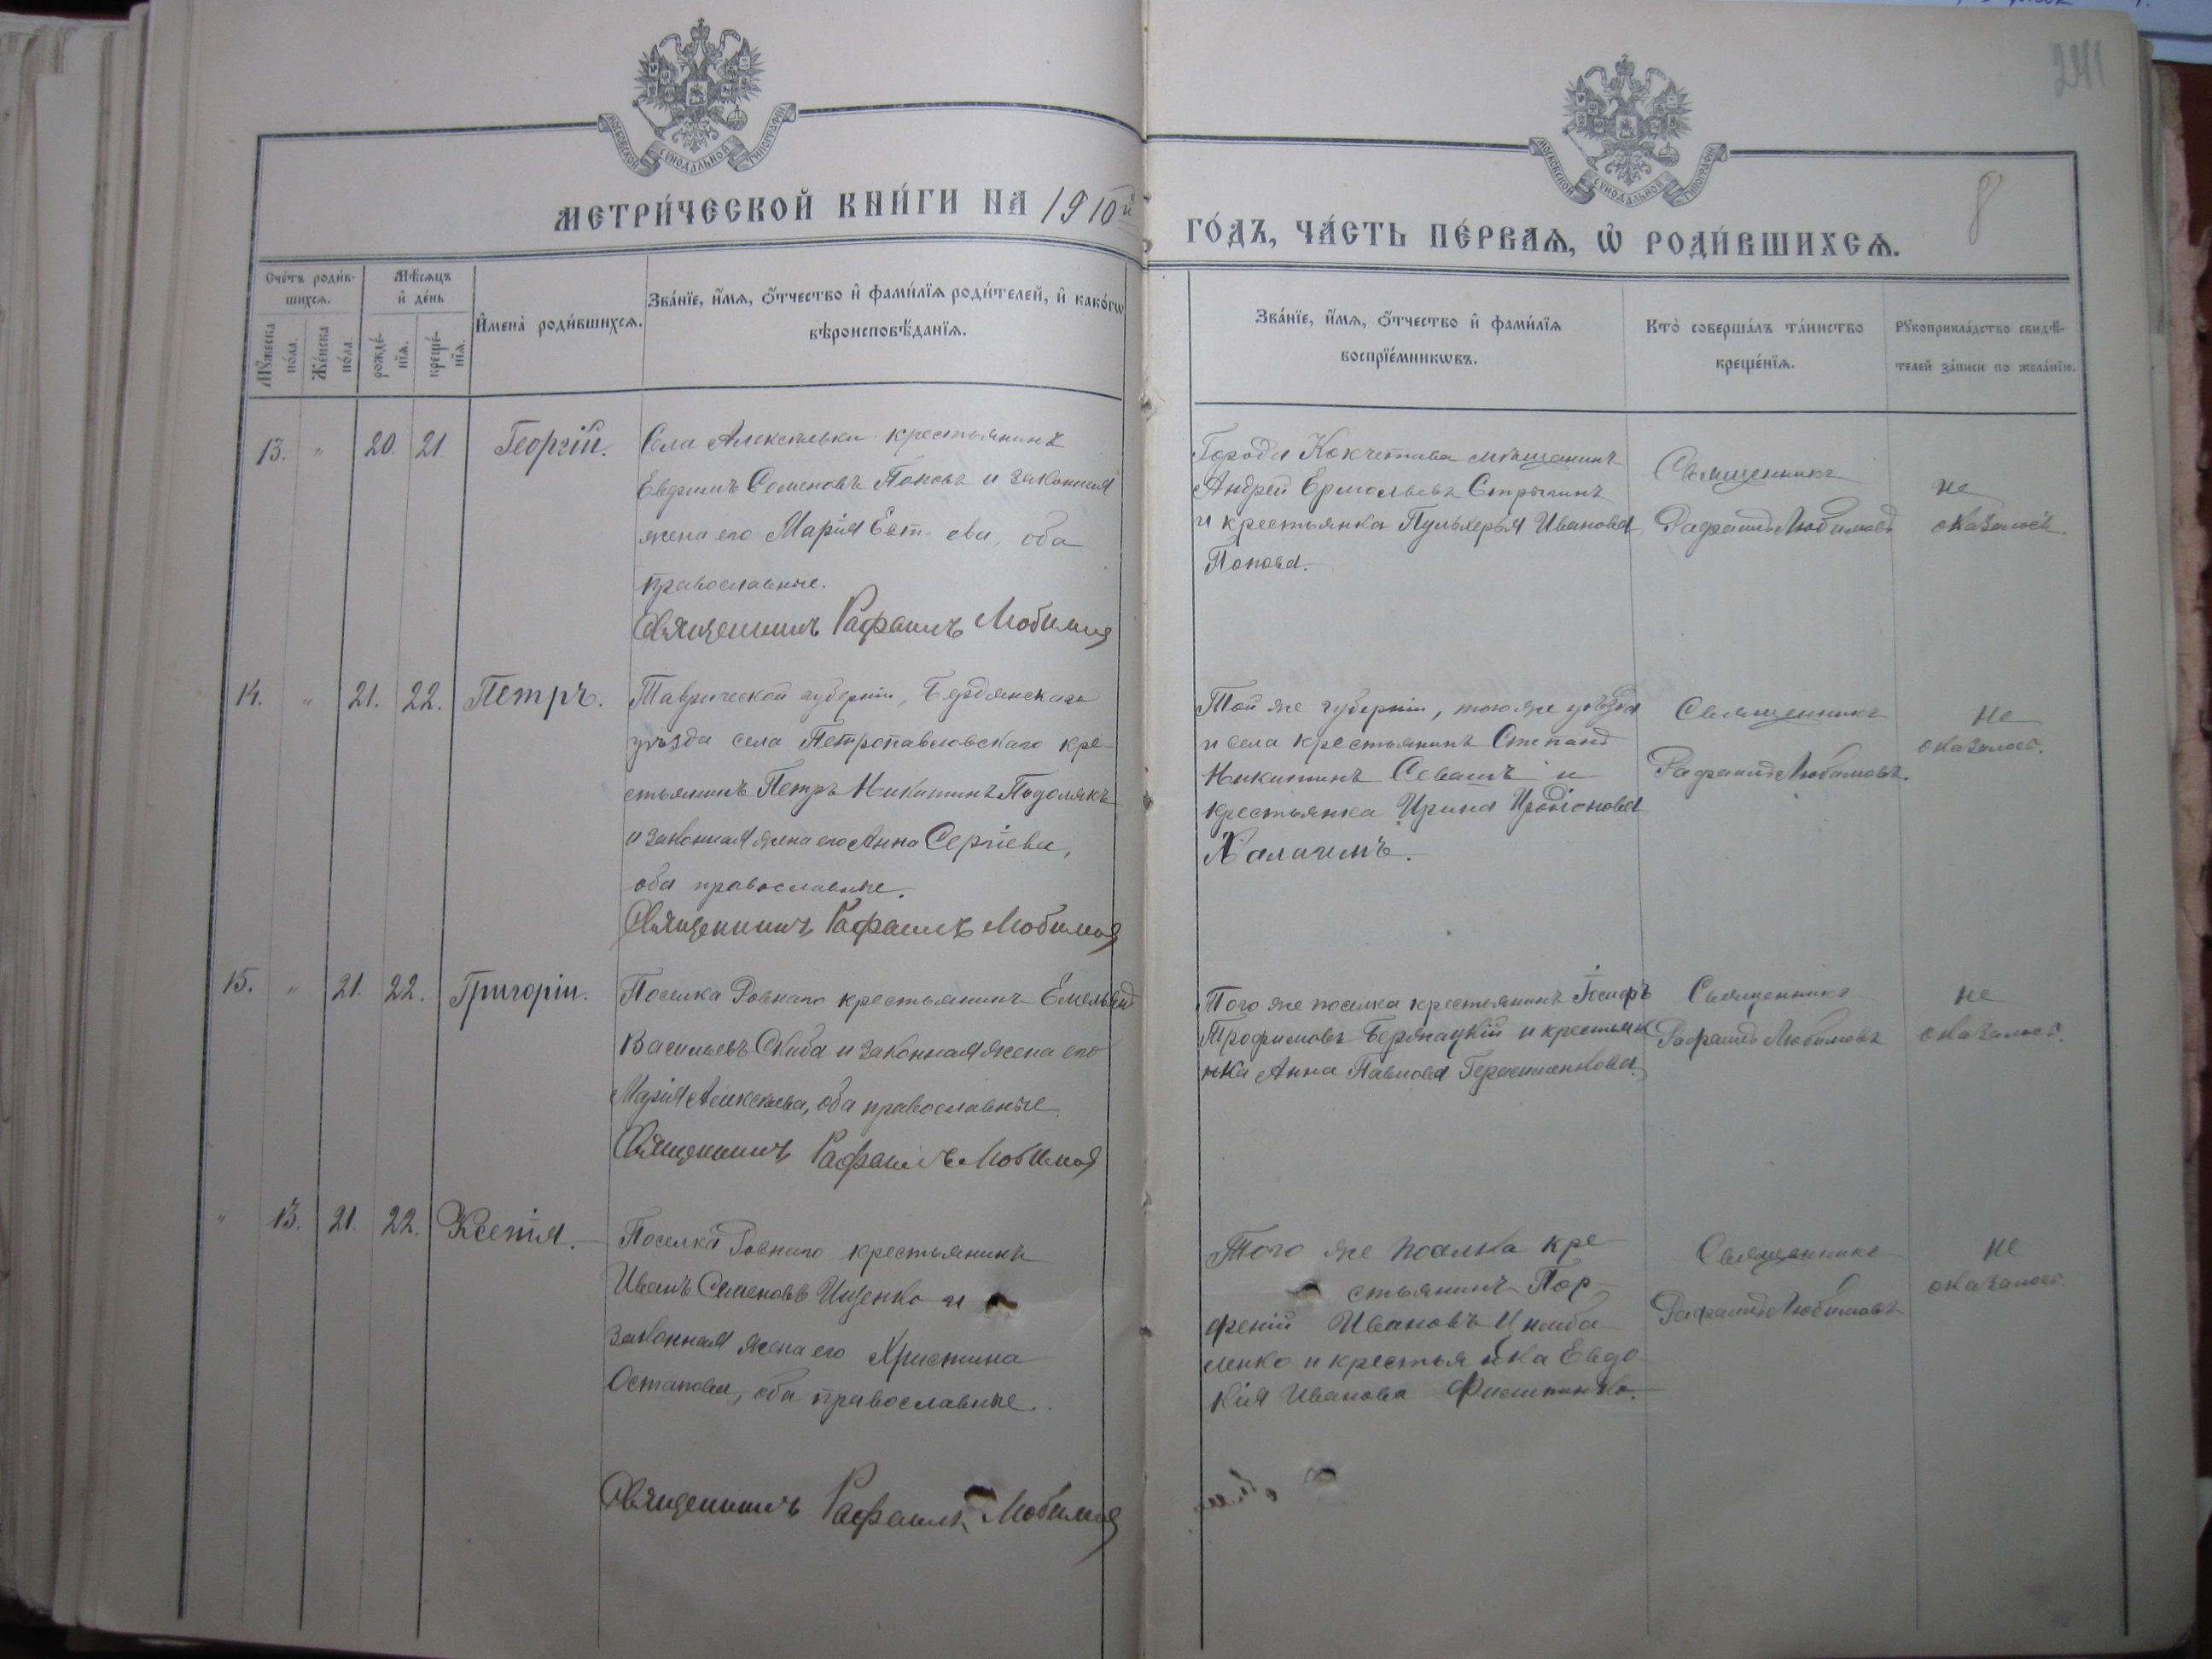 241
МОСКОВСКОЙ СѴНОДАЛЬНОЙ ТИПОГРАФІИ
МОСКОВСКОЙ СѴНОДАЛЬНОЙ ТИПОГРАФІИ
МЕТРИ́ЧЕСКОЙ КНИ́ГИ НА 1910й
ГО́ДЪ, ЧА́СТЬ ПЕ́РВАѦ, Ѡ РОДИ́ВШИХСѦ.
8
Сче́тъ роди́в-
шихсѧ.
Мꙋ́жеска
по́ла.
Же́нска
по́ла.
Мѣ́сѧцъ
и҆ де́нь
рожде́-
нїѧ.
креще́-
нїѧ.
И҆мена̀ роди́вшихсѧ.
Зва́нїе, и҆́мѧ, ѻ҆́тчество и҆ фами́лїѧ роди́телей, и҆ како́гѡ
вѣроисповѣ́данїѧ.
Зва́нїе, и҆́мѧ, ѻ҆́тчество и҆ фами́лїѧ
воспрїе́мникѡвъ.
Кто̀ соверша́лъ та́инство
креще́нїѧ.
Рꙋкоприкла́дство свидѣ́-
телей за́писи по жела́нїю.
13. " 20. 21. Георгій.
Села Алексѣевки крестьянинъ
Семеновъ Поповъ и законная
жена его Марія оба
православные.
Священникъ Рафаилъ Любимов
Города Кокчетава мѣщанинъ
Андрей Ермольевъ
и крестьянка Пульхерія Иванова
Попова.
Священникъ
Рафаилъ Любимовъ
не
оказалось.
14. " 21. 22. Петръ.
Таврической губерніи, Бердянскаго
уѣзда села Петропавловскаго кре-
стьянинъ Петръ Никитинъ Подолякъ
и законная жена его Анна Сергіева,
оба православные.
Священникъ Рафаилъ Любимов
Той же губерніи, того же уѣзда
и села крестьянинъ Степанъ
Никитинъ и
крестьянка Ирина Иродіонова
Священникъ
Рафаилъ Любимовъ.
не
оказалось.
15. " 21. 22. Григорій.
Поселка Ровнаго крестьянинъ Емельянъ
Васильевъ Скиба и законная жена его
Марія Алексѣева, оба православные.
Священникъ Рафаилъ Любимов
Того же поселка крестьянинъ Іосифъ
Трофимовъ и крестьян
нка Анна Павлова
Священникъ
Рафаилъ Любимовъ
не
оказалось.
" 13. 21. 22. Ксенія.
Поселка Ровнаго крестьянинъ
Иванъ Семеновъ Ищенко и
законная жена его Христина
Остапова, оба православные.
Священникъ Рафаилъ Любимов
Того же поселка кре-
стьянинъ Пор-
фирій Ивановъ Цимба-
ленко и крестьянка Евдо-
кія Иванова
Священникъ
Рафаилъ Любимовъ
не
оказалось.